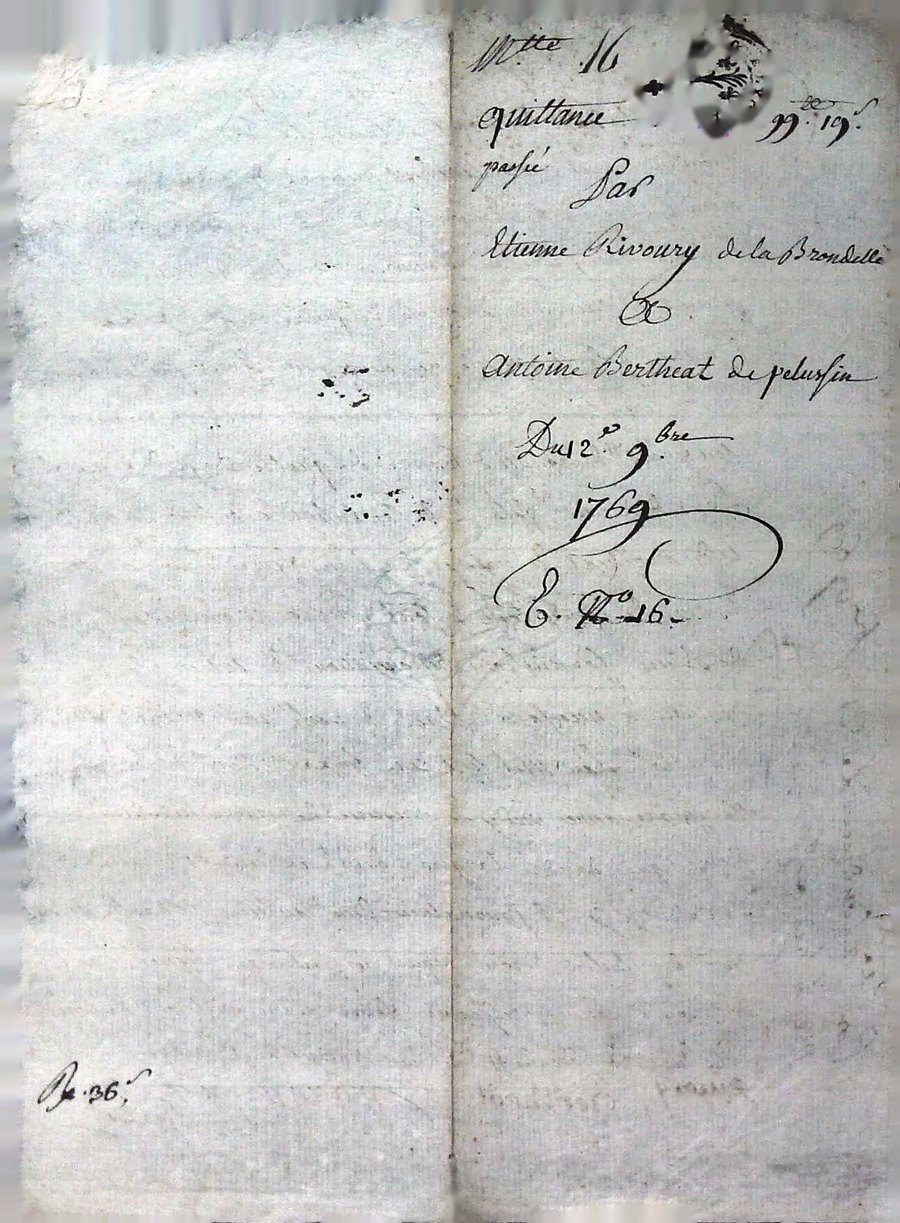 M.tte 16
quittance 99.tt 19.s
passé
Par
Etienne Rivoury de la Brondelle
&
Antoine Bertheat de pelussin
Du 12.e 9.bre
1769
E. N.o 16.
Re. 36.s